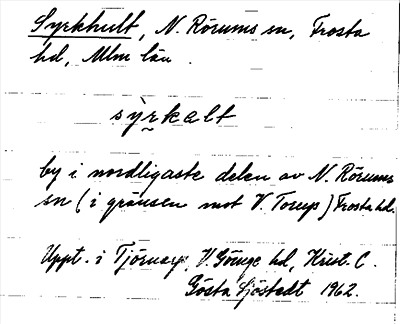 Syrkhult, N. Rörums sn, Frosta
hd, Mlm län.
sy̌rkalt
by i nordligaste delen av N. Rörums
sn (i gränsen mot V. Torup) Frosta hd.
Uppt. i Tjörnarp, V. Göinge hd, Krist. C.
Gösta Sjöstedt 1962.